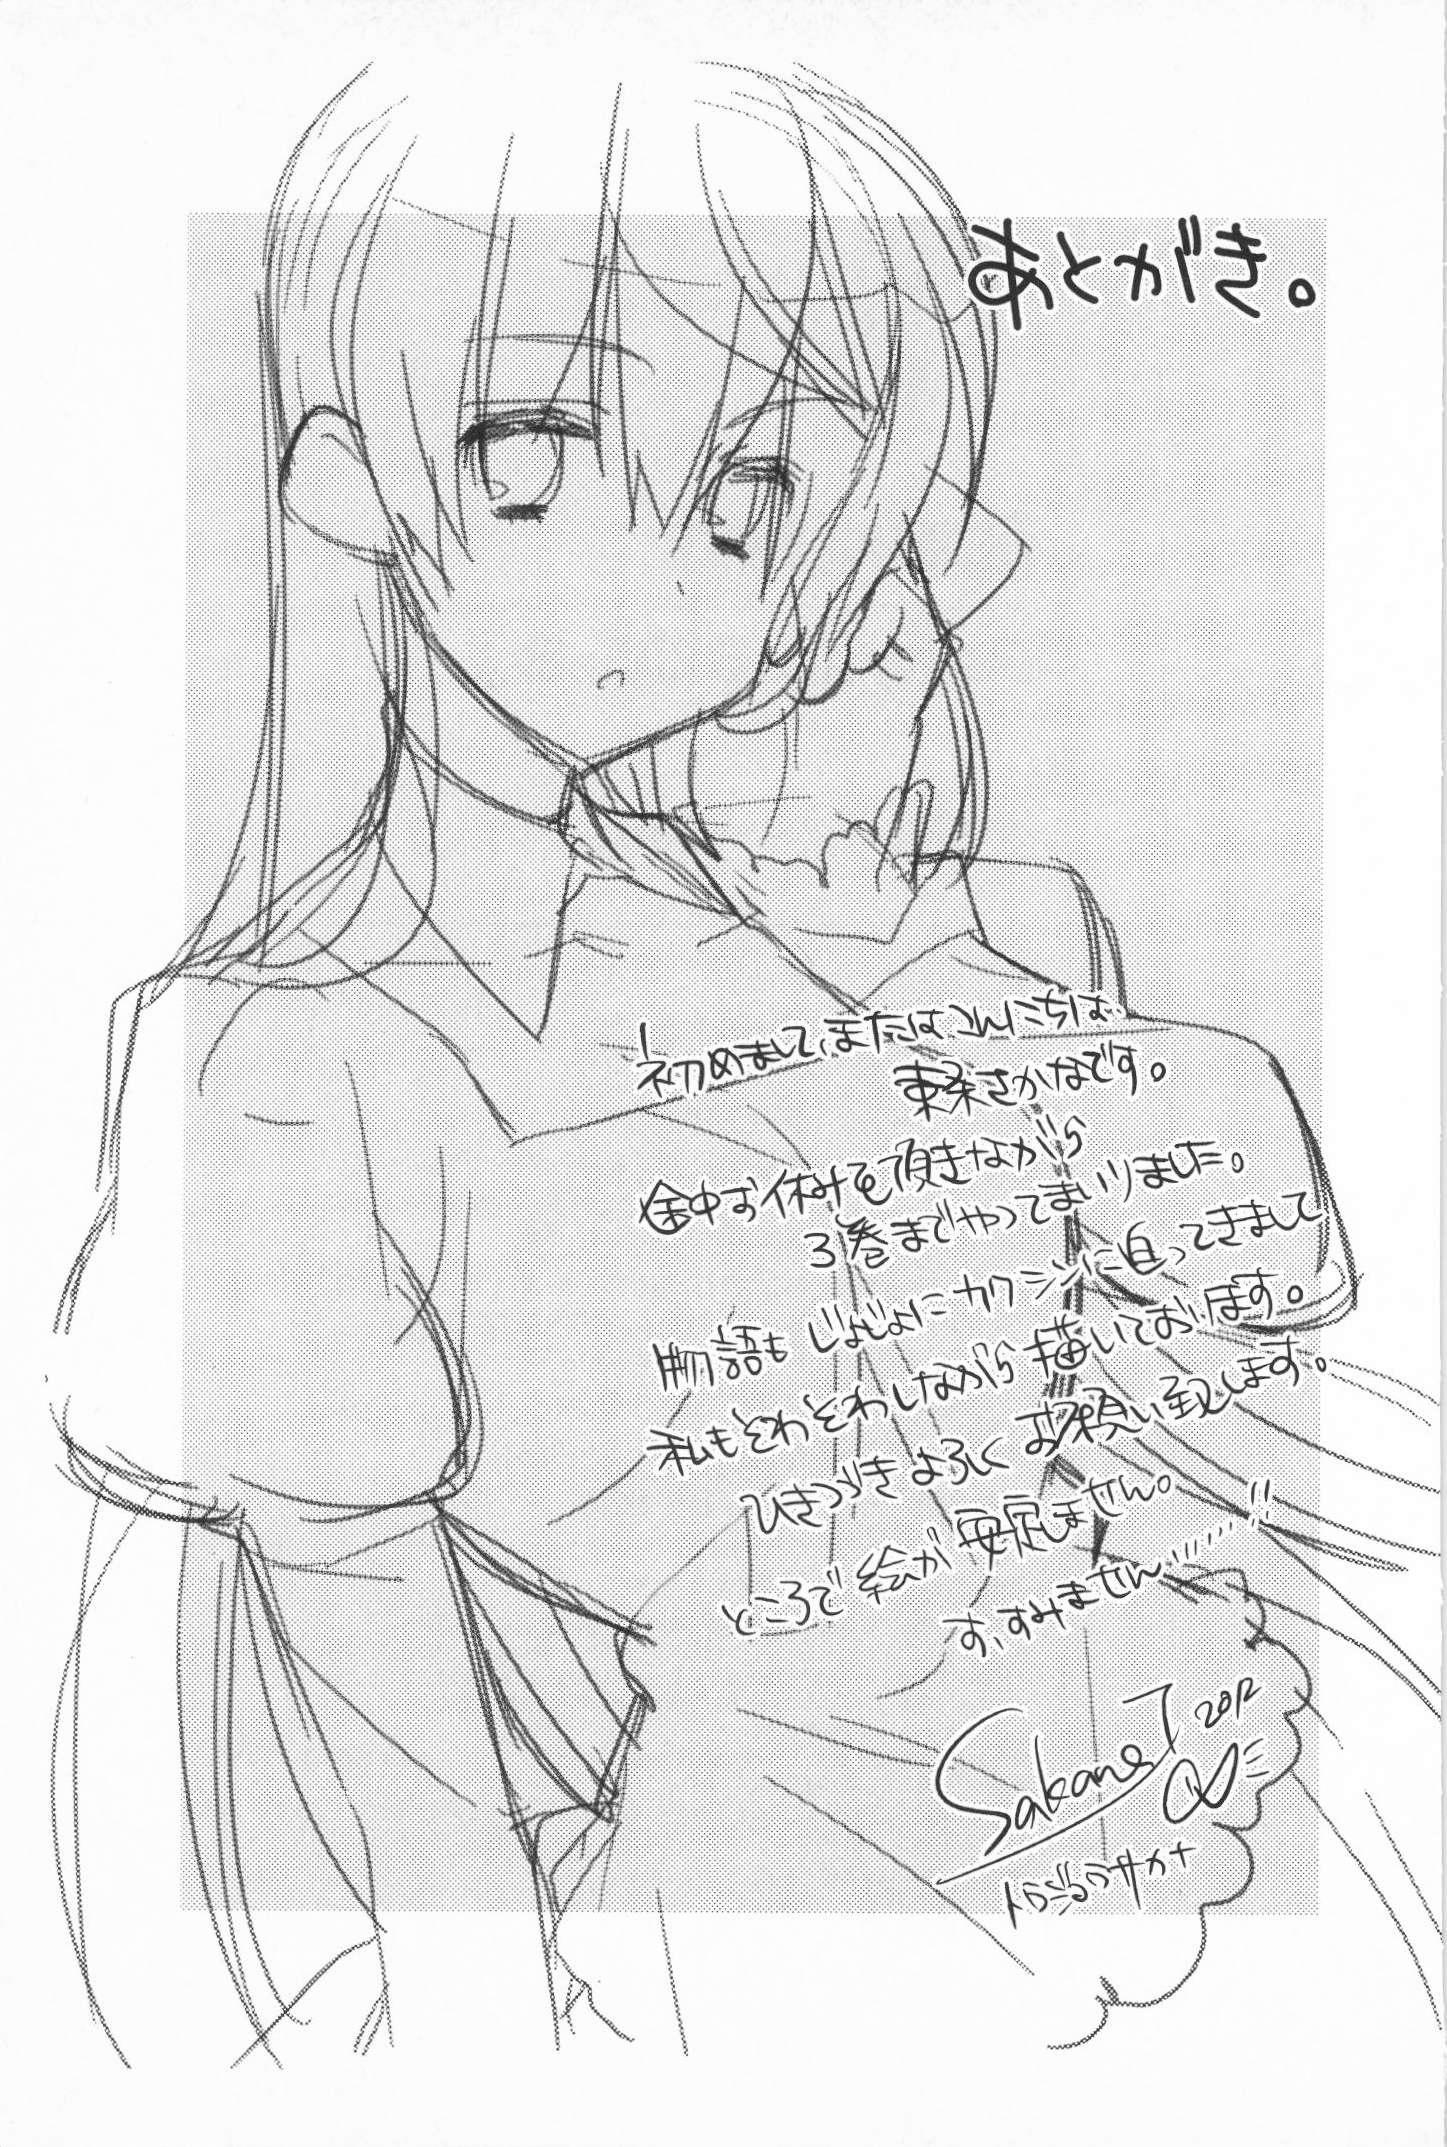 あとがき。
初めまして、またはこんにちは
東条さかなです。
途中お休みを頂きながら
3巻までやってまいりました。
物語もじょじょにカクシンに迫ってきまして
私もそわそわしながら描いております。
ひきつづきよろしくお願い致します。
ところで絵が安定しません。
す、すみません……!!
Sakana T 2012
トウジョウサカナ